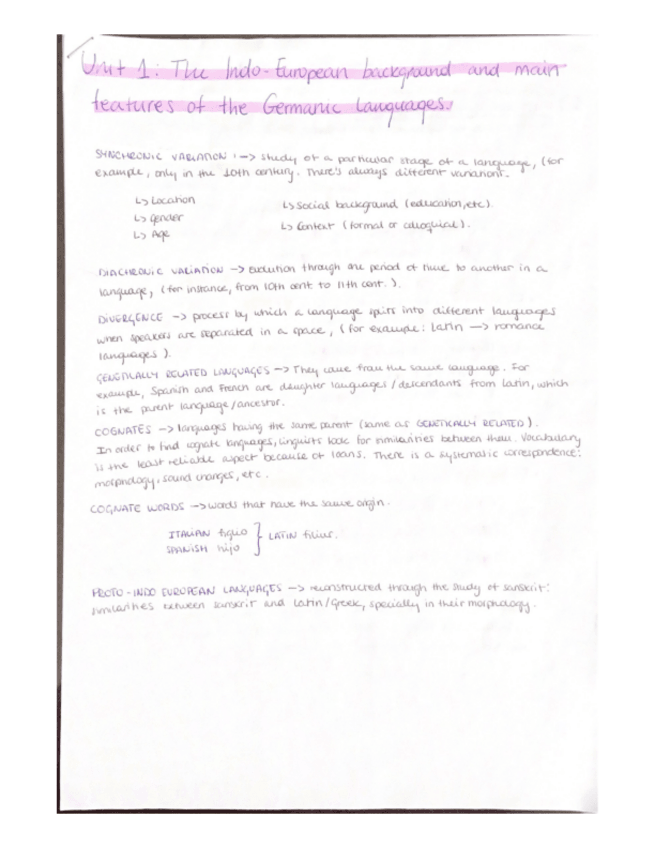 Unit 1: The Indo-European background and main
features of the Germanic Languages.
SYNCHRONIC VARIATION: -> study of a particular stage of a language, (for
example, only in the 10th century. There's always different variations.
↳ Location
↳ gender
↳ Age
↳ Social background (education, etc).
↳ Context (formal or colloquial).
DIACHRONIC VARIATION -> Evolution through one period of time to another in a
language, (for instance, from 10th cent to 11th cent.).
DIVERGENCE -> process by which a language splits into different languages
when speakers are separated in a space, (for example: Latin -> romance
languages).
GENETICALLY RELATED LANGUAGES -> They come from the same language. For
example, Spanish and French are daughter languages/descendants from Latin, which
is the parent language/ancestor.
COGNATES -> languages having the same parent (same as GENETICALLY RELATED).
In order to find cognate languages, linguists look for similarities between them. Vocabulary
is the least reliable aspect because of loans. There is a systematic correspondence:
morphology, sound changes, etc.
COGNATE WORDS -> words that have the same origin.
ITALIAN figlio
SPANISH hijo
} LATIN filius.
PROTO-INDO EUROPEAN LANGUAGES -> reconstructed through the study of sanskrit:
similarities between sanskrit and Latin/Greek, specially in their morphology.